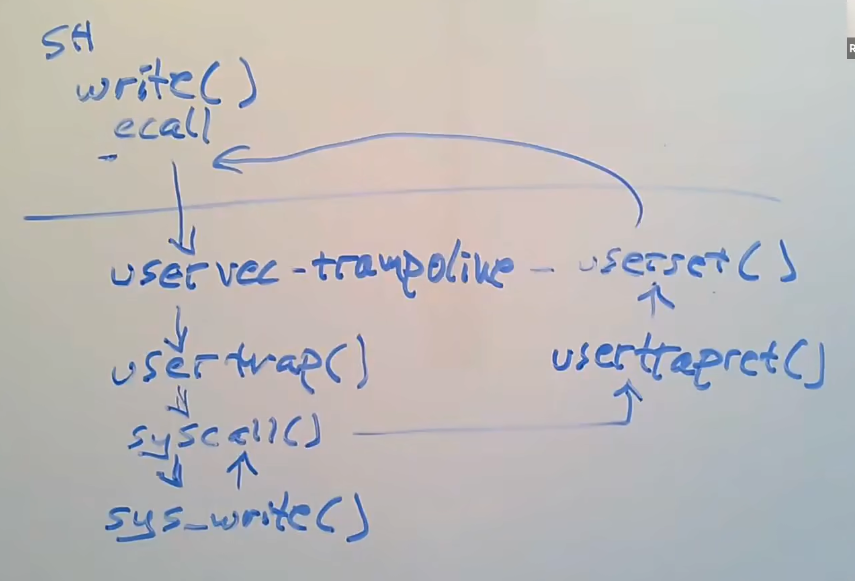 SH
write()
ecall
uservec - trampoline - userret()
usertrap()
usertrapret()
syscall()
sys_write()
R